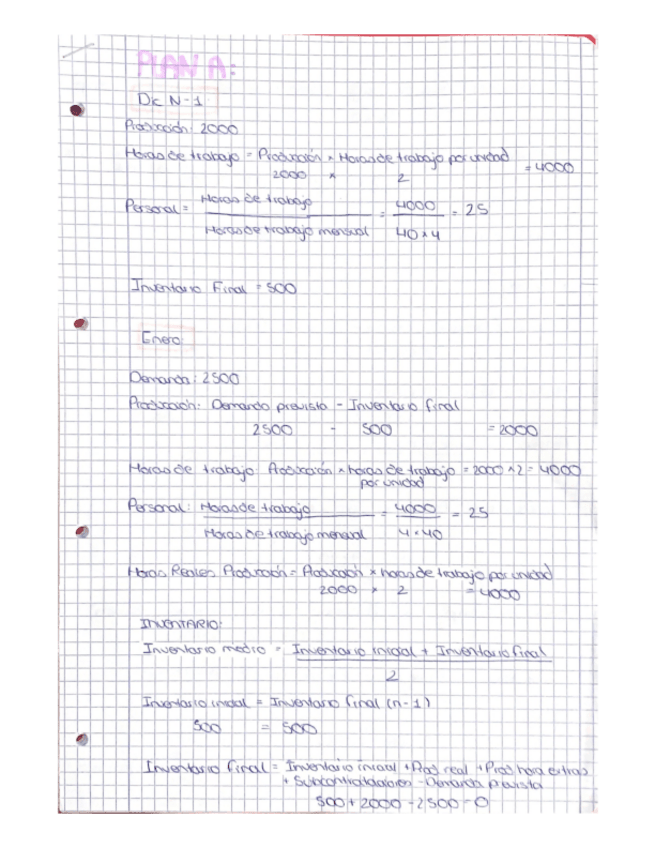 PLAN A:
Dic N-1
Producción: 2000
Horas de trabajo = Producción × Horas de trabajo por unidad
2000 × 2 = 4000
Personal = Horas de trabajo / Horas de trabajo mensual = 4000 / 40×4 = 25
Inventario Final = 500
Enero:
Demanda: 2500
Producción: Demanda prevista - Inventario final
2500 - 500 = 2000
Horas de trabajo: Producción × horas de trabajo por unidad = 2000 × 2 = 4000
Personal: Horas de trabajo / Horas de trabajo mensual = 4000 / 4×40 = 25
Horas Reales Producción = Producción × horas de trabajo por unidad
2000 × 2 = 4000
INVENTARIO:
Inventario medio = Inventario inicial + Inventario final / 2
Inventario inicial = Inventario final (n-1)
500 = 500
Inventario final = Inventario inicial + Prod real + Prod hora extras
+ Subcontratación - Demanda prevista
500 + 2000 - 2500 = 0